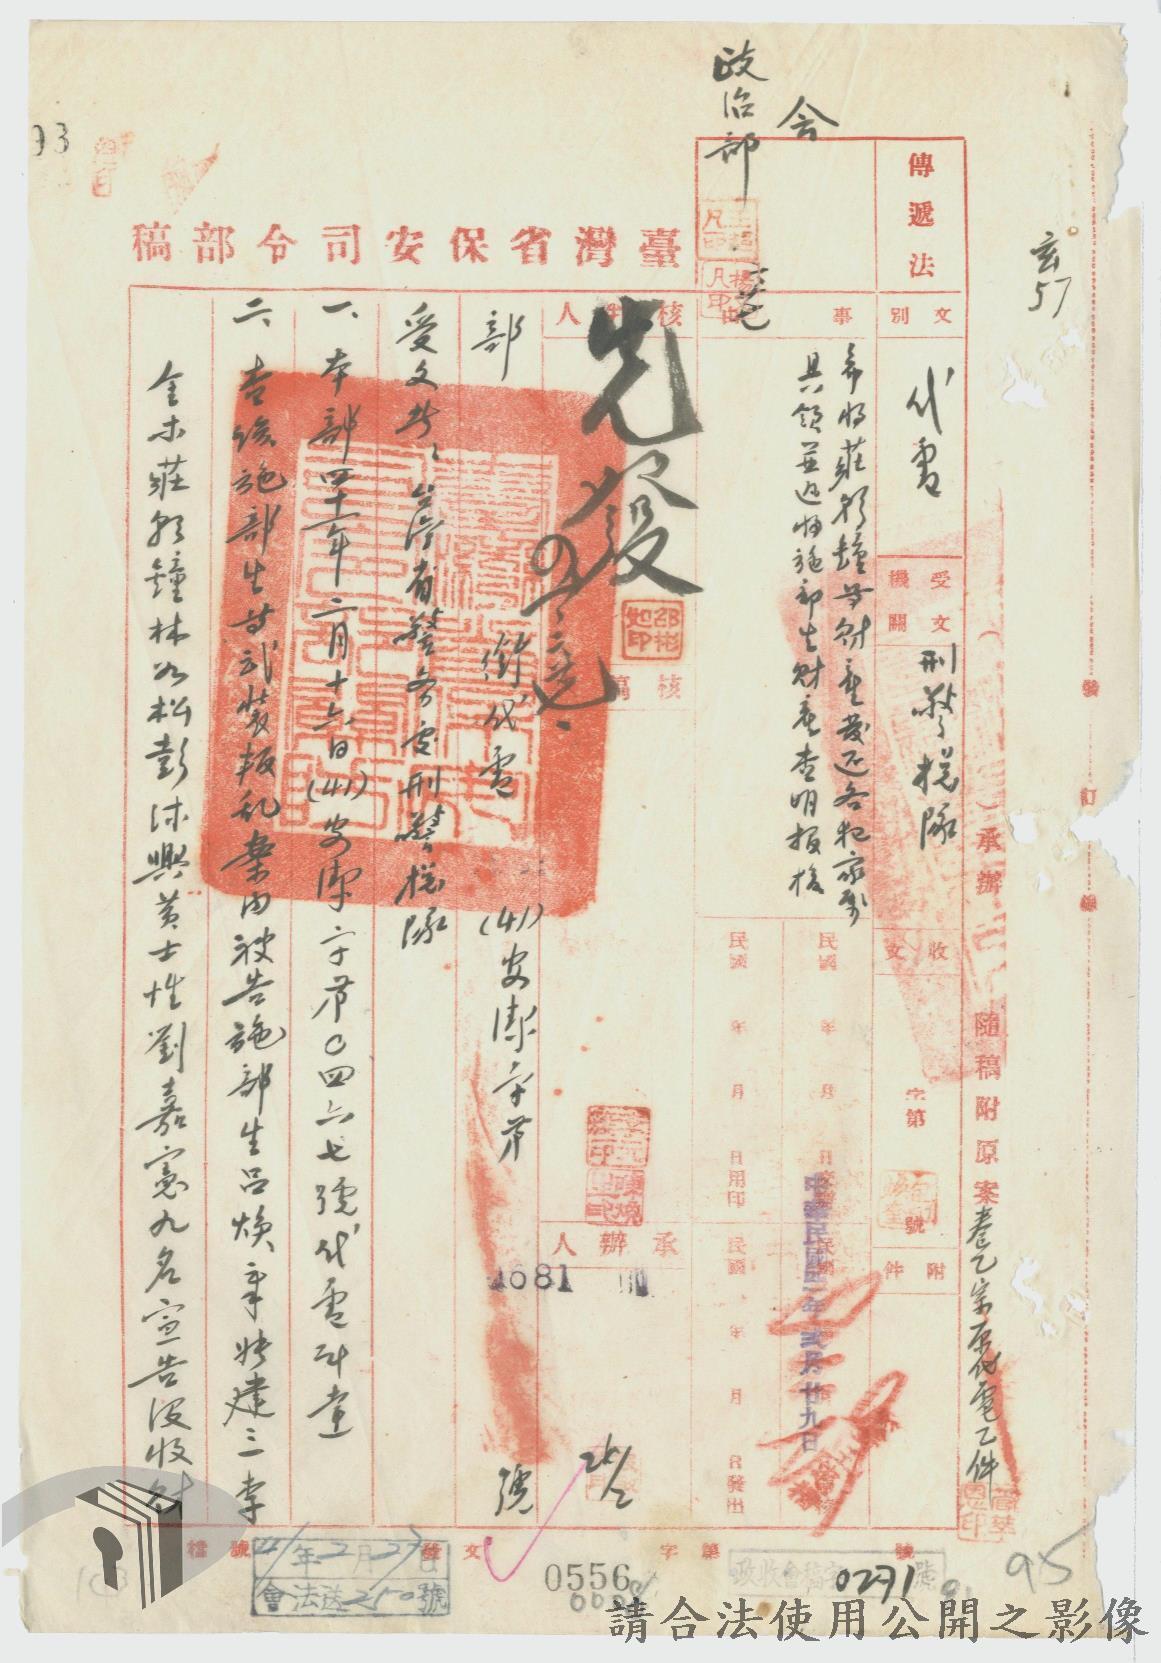 政治部
会
玄57
傳遞法
臺灣省保安司令部稿
文別
代電
受文機關
刑警總隊
收文
字第
號
附件
事由
希將莊阿鐘等財產發还各犯家屬
具領並迅將施部生財產查明报核
先發
核判人
核稿
承辦人
邵彬如印
民國 年 月 日用印
民國 年 月 日發出
中華民國四一年貳月廿九日
承辦
隨稿附原案卷乙宗原代電乙件
部 衔代電 (41)安潔字第 號
4681
受文者、台湾省警务处刑警总隊
一、本部四十一年二月十六日(41)安潔字第〇四六七號代電計達
二、查該施部生等武裝叛乱案內被告施部生呂煥章 建三李
金木莊阿鐘林如松彭沐興黃士性劉嘉憲九名宣告沒收財
發文 字第 號
檔號
41年2月27日
會法送250號
0556
政收會稿字0271號
95
93
裝訂線
請合法使用公開之影像